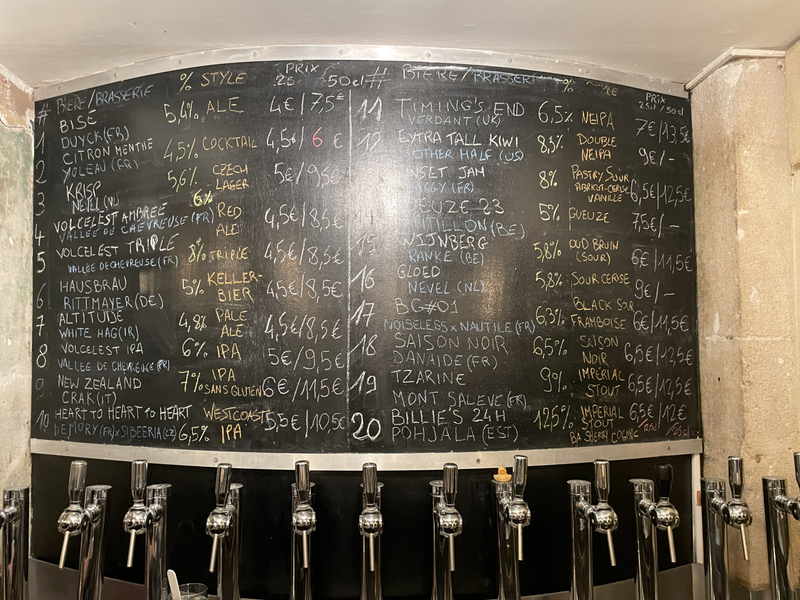 # BIERE/BRASSERIE % STYLE PRIX
25 / 50cl
1 BISE 5,4% ALE 4€/7,5€
DUYCK (FR)
2 CITRON MENTHE 4,5% COCKTAIL 4,5€/6€
YOLEAU (FR)
3 KRISP 5,6% CZECH LAGER 5€/9,5€
(NL)
4 VOLCELEST AMBRÉE 6% RED ALE 4,5€/8,5€
VALLÉE DE CHEVREUSE (FR)
5 VOLCELEST TRIPLE 8% TRIPLE 4,5€/8,5€
VALLÉE DE CHEVREUSE (FR)
6 HAUSBRAU 5% KELLER-BIER 4,5€/8,5€
RITTMAYER (DE)
7 ALTITUDE 4,8% PALE ALE 4,5€/8,5€
WHITE HAG (IR)
8 VOLCELEST IPA 6% IPA 5€/9,5€
VALLÉE DE CHEVREUSE (FR)
9 NEW ZEALAND 7% IPA SANS GLUTEN 6€/11,5€
CRAK (IT)
10 HEART TO HEART TO HEART 6,5% WESTCOAST IPA 5,5€/10,5€
DEMORY (FR) x SIBEERIA (CZ)
# BIERE/BRASSERIE % STYLE PRIX
25cl / 50cl
11 TIMING'S END 6,5% NEIPA 7€/13,5€
VERDANT (UK)
12 EXTRA TALL KIWI 8,3% DOUBLE NEIPA 9€/-
OTHER HALF (US)
NSET JAM 8% PASTRY SOUR ABRICOT-CERISE VANILLE 6,5€/12,5€
GGY (FR)
EUZE 23 5% GUEUZE 7,5€/-
TILLON (BE)
15 WIJNBERG 5,8% OUD BRUIN (SOUR) 6€/11,5€
RANKE (BE)
16 GLOED 5,8% SOUR CERISE 9€/-
NEVEL (NL)
17 BG#01 6,3% BLACK SOUR FRAMBOISE 6€/11,5€
NOISELESS x NAUTILE (FR)
18 SAISON NOIR 6,5% SAISON NOIR 6,5€/12,5€
DANAIDE (FR)
19 TZARINE 9% IMPÉRIAL STOUT 6,5€/12,5€
MONT SALEVE (FR)
20 BILLIE'S 24H 12,5% IMPÉRIAL STOUT 6,5€/12€
POHJALA (EST) BA SHERRY